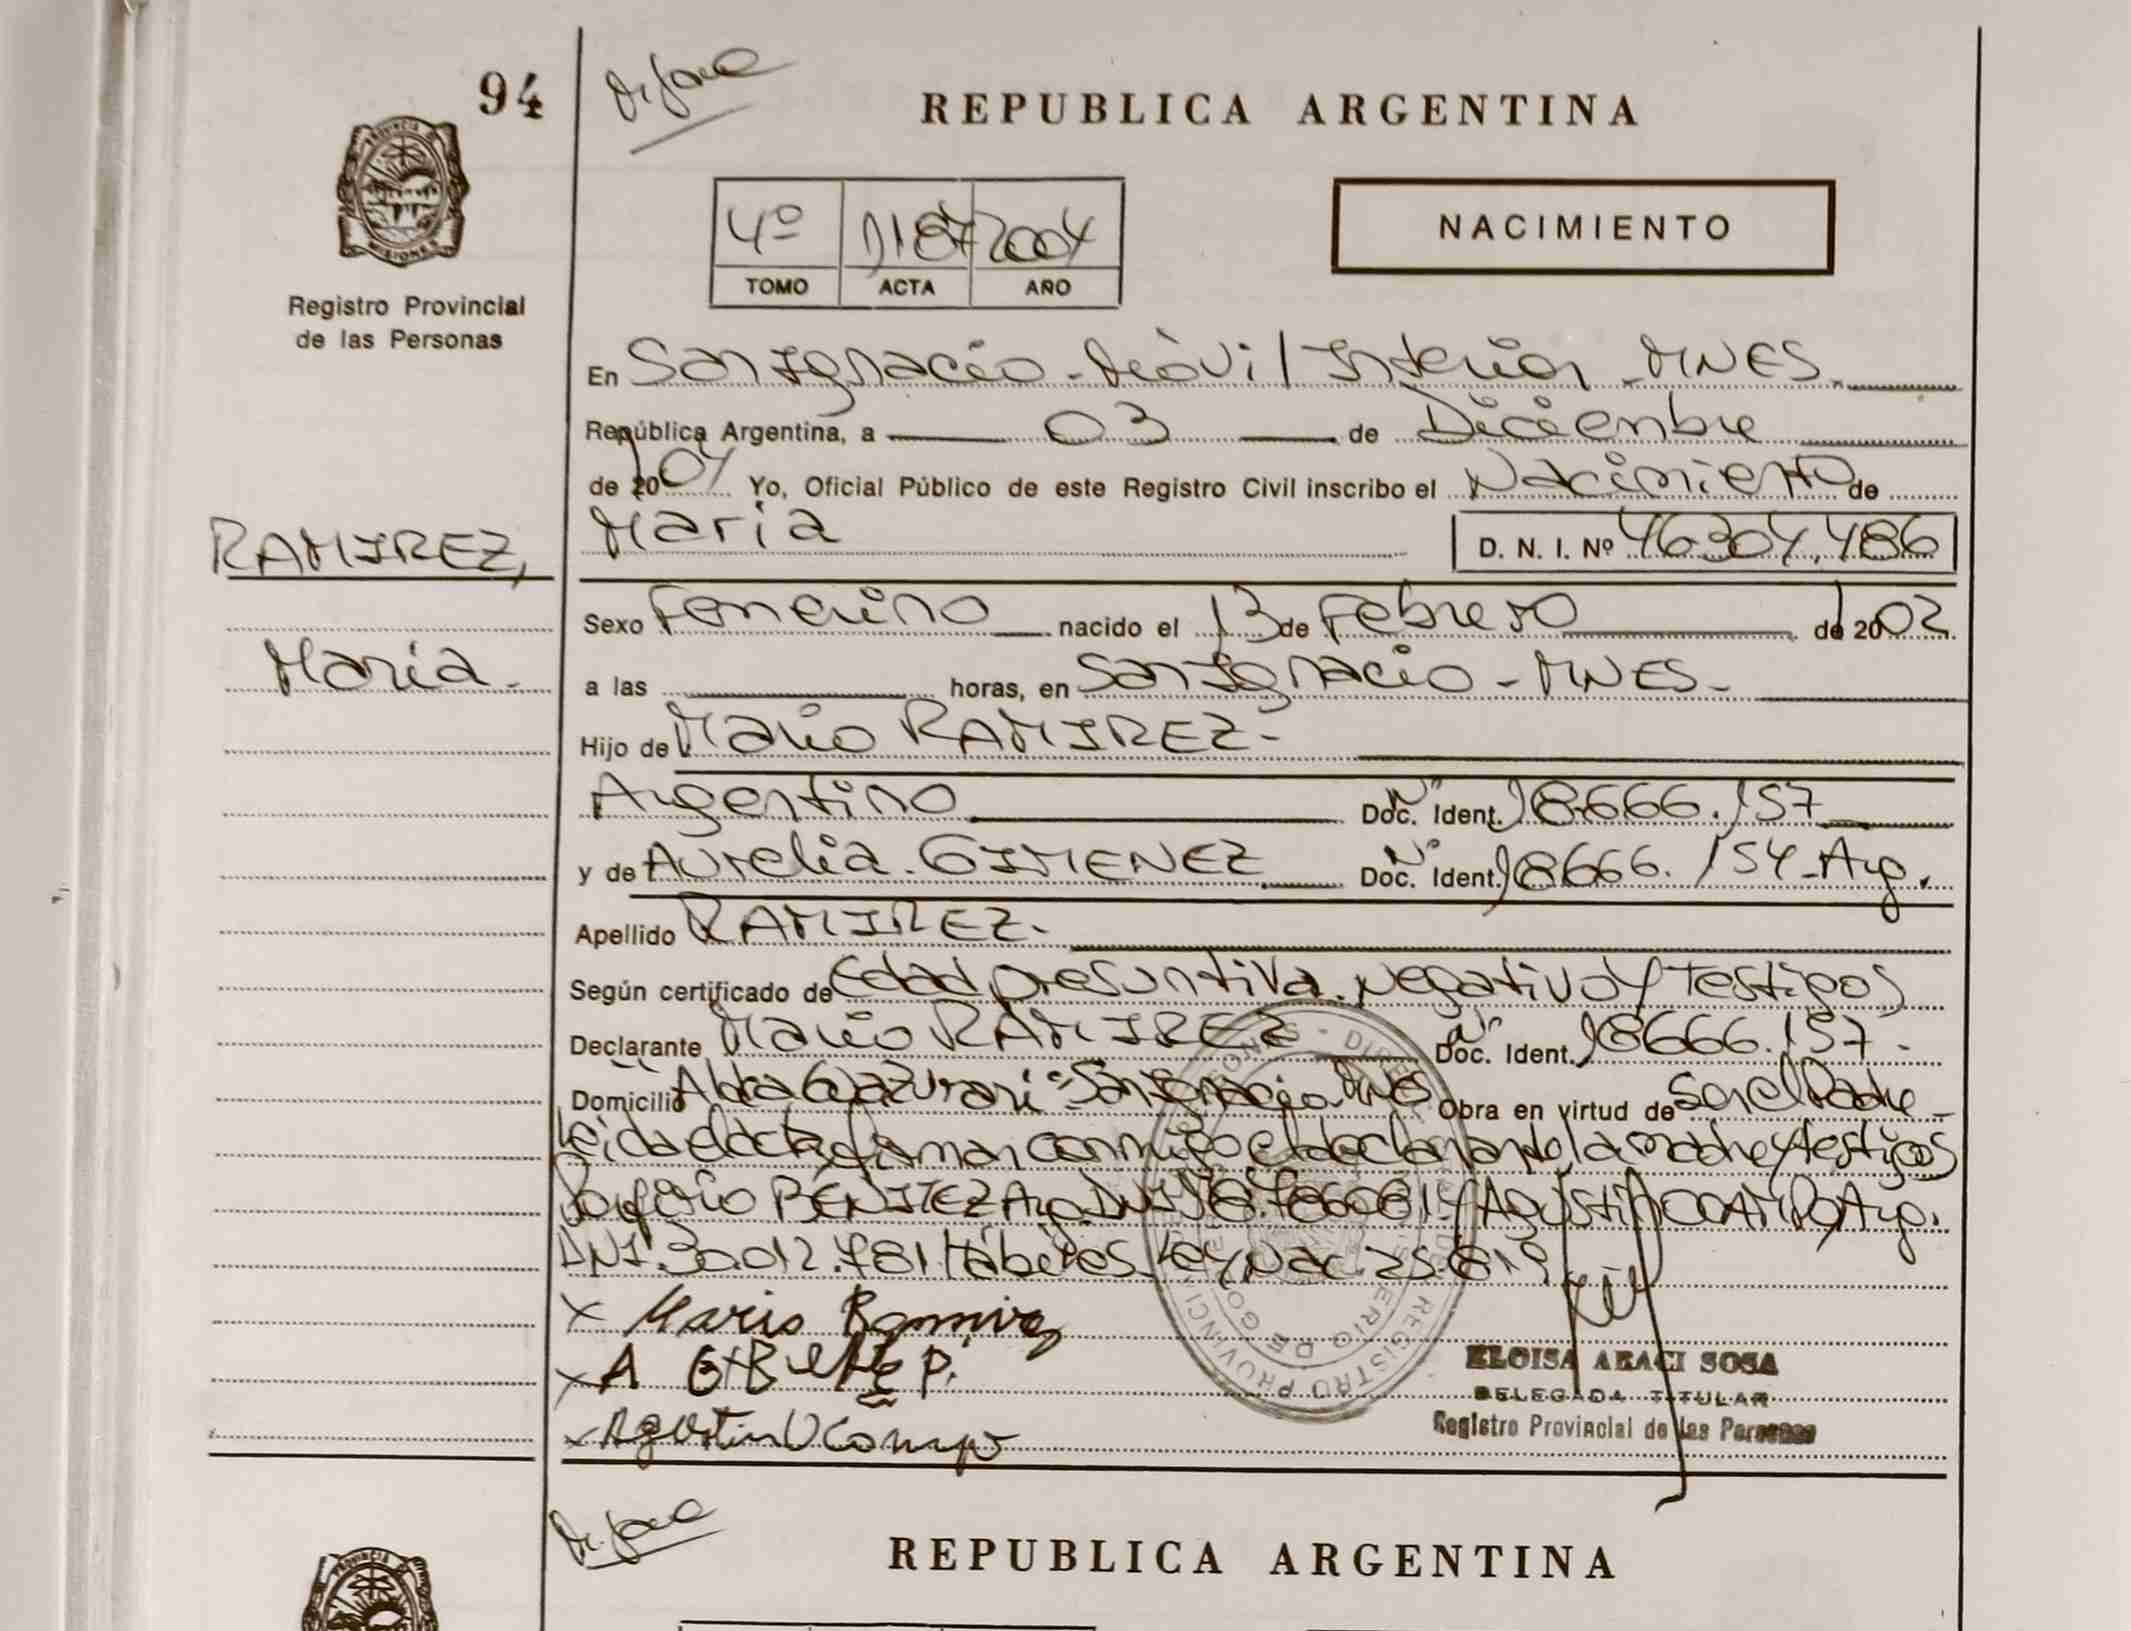 94
REPUBLICA ARGENTINA
4º 1187 2004
TOMO ACTA AÑO
NACIMIENTO
Registro Provincial
de las Personas
En San Ignacio - Móvil Interior - MNES.
República Argentina, a 03 de Diciembre
de 2004 Yo, Oficial Público de este Registro Civil inscribo el Nacimiento de
RAMIREZ, Maria D. N. I. Nº 46.304.486
Sexo Femenino nacido el 13 de Febrero de 2002
Maria. a las horas, en San Ignacio - MNES -
Hijo de Mario RAMIREZ -
Argentino Doc. Ident. Nº 18.666.157
y de Aurelia. GIMENEZ Doc. Ident. Nº 18.666.154 - Arg.
Apellido RAMIREZ.
Según certificado de Edad presuntiva. Negativo y Testigos
Declarante Mario RAMIREZ Doc. Ident. Nº 18.666.157.
Domicilio San Ignacio MNES Obra en virtud de Ser el Padre -
Leida el acta firman conmigo el declarante, la madre y testigos
BENITEZ Arg. DNI Arg.
DNI. 30.012.781 Hábiles. Ley Nac. 25.819
x Mario Ramirez
x A
x Agustin Ocampo
ELOISA ARACI SOSA
DELEGADA TITULAR
Registro Provincial de las Personas
REPUBLICA ARGENTINA